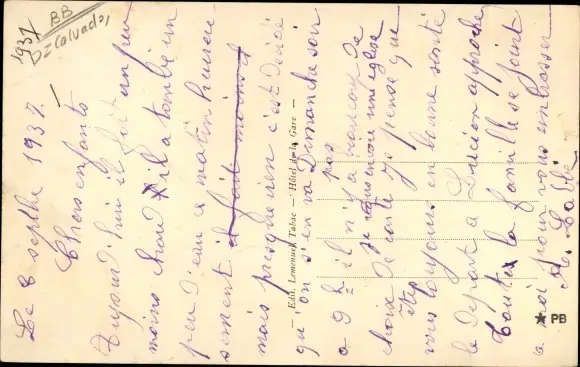 1937 BB
DZ Calvados,
Le 8 septbre 1937.
Chers enfants
Aujourd'hui il fait un peu
moins chaud il a tombé un
peu d'eau ce matin heureu-
sement il fait moins d
mais presque rien c'est décidé
qu'on s'en va Dimanche soir
a 9h il n'y a pas beaucoup de
choix de carte je
encore une église
je pense que
vous êtes toujours en bonne santé
le départ a approche
Toute la famille se joint
a moi pour vous embrasser
— Edit. Lemenuel, Tabac — Hôtel de la Gare —
★ PB